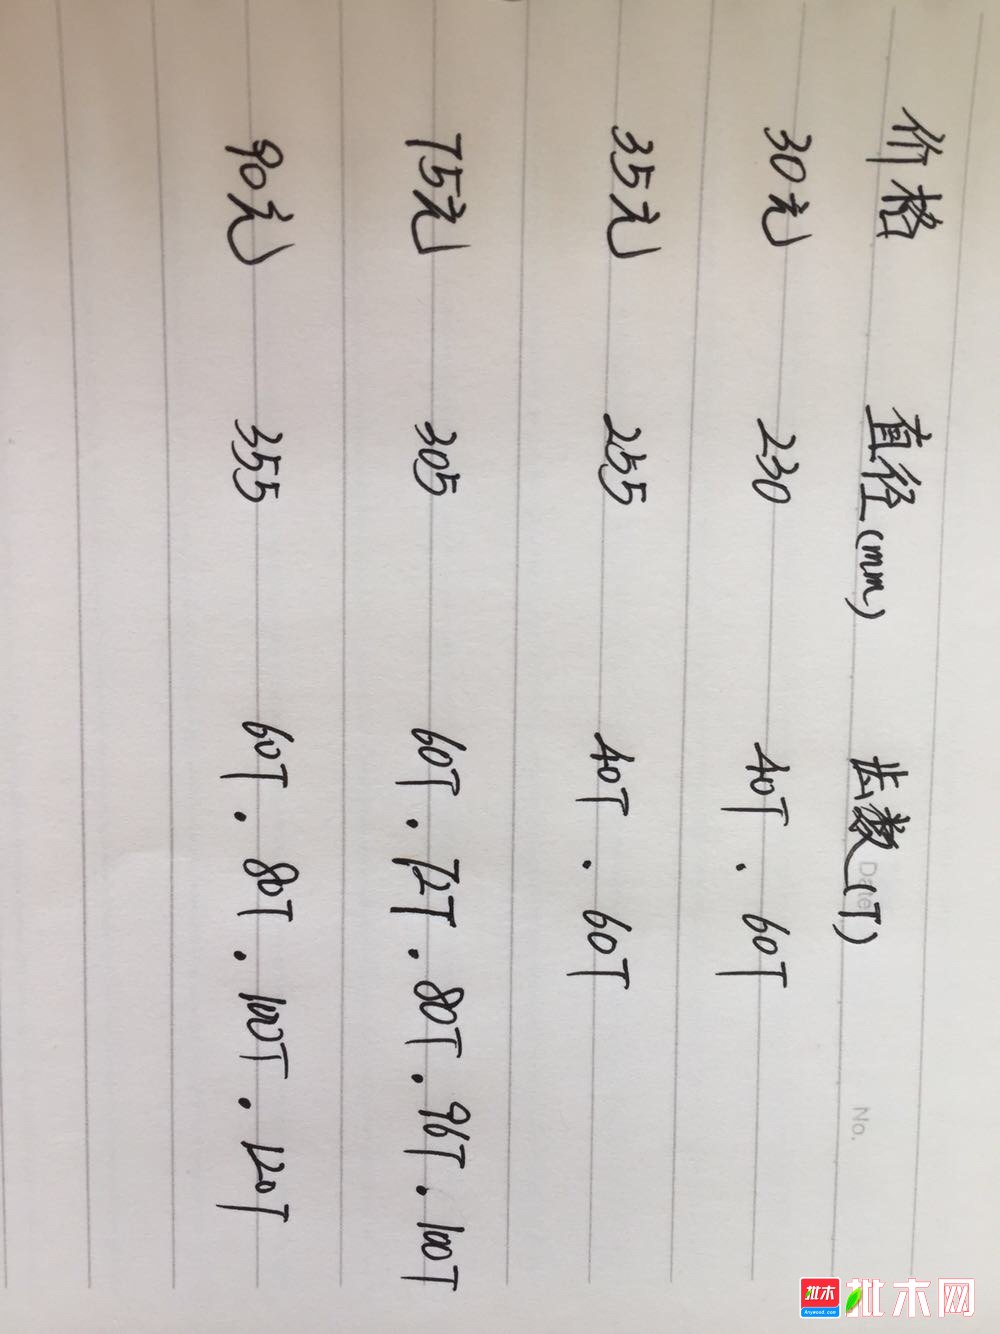 价格 直径(mm) 齿数(T)
30元 230 40T . 60T
35元 255 40T . 60T
75元 305 60T . 72T . 80T . 96T . 100T
90元 355 60T . 80T . 100T . 120T
Date
No.
批木
Anywood.com
批木网